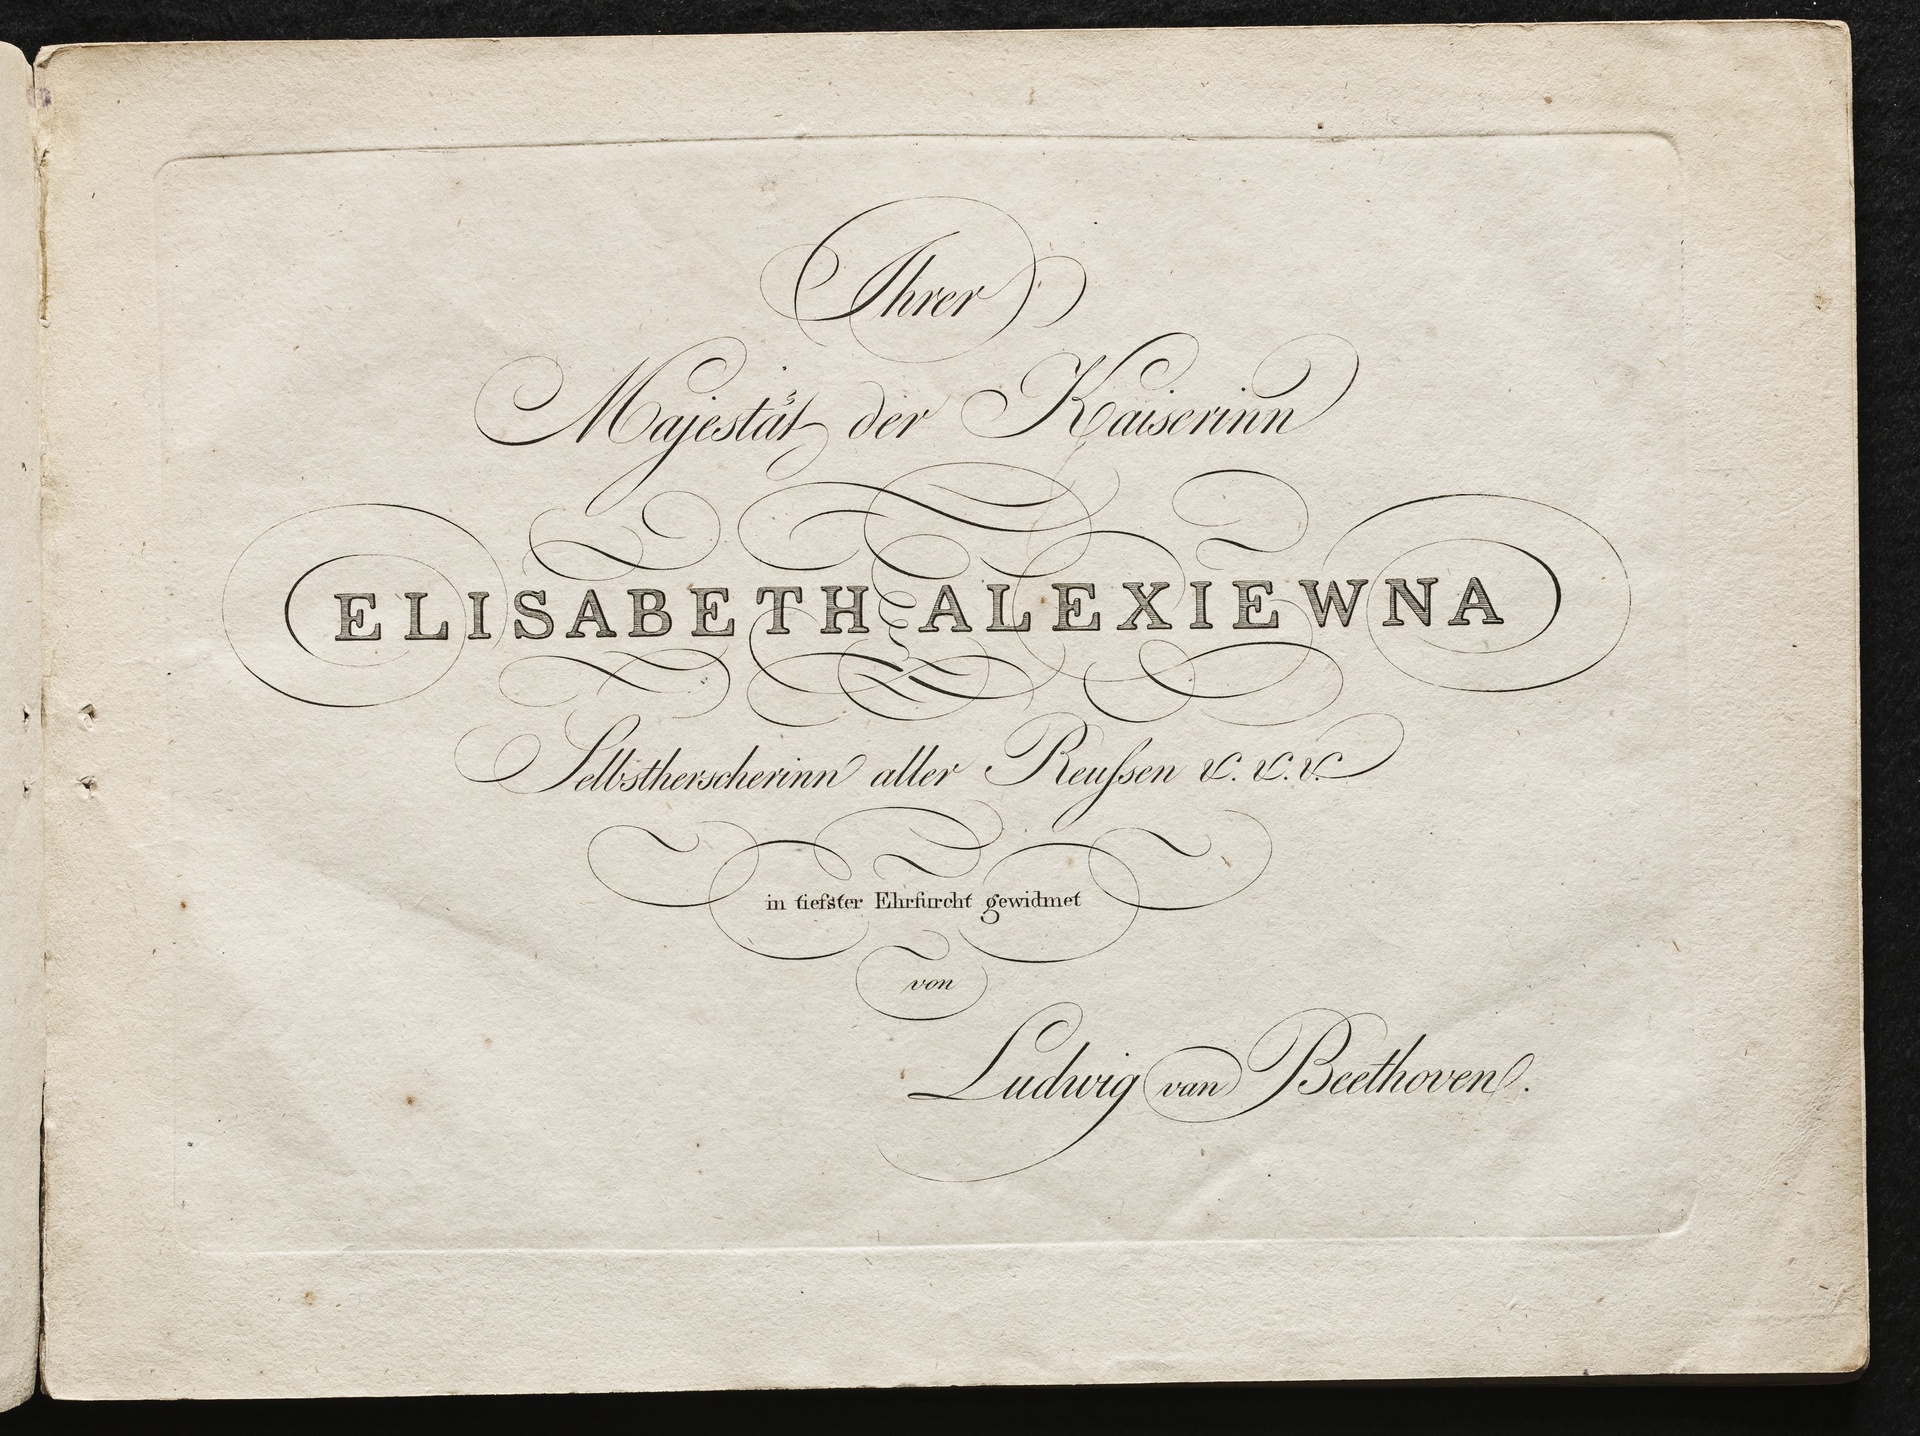 Ihrer
Majestät der Kaiserinn
ELISABETH ALEXIEWNA
Selbstherscherinn aller Reuſsen &c. &c. &c.
in tiefster Ehrfurcht gewidmet
von
Ludwig van Beethoven.